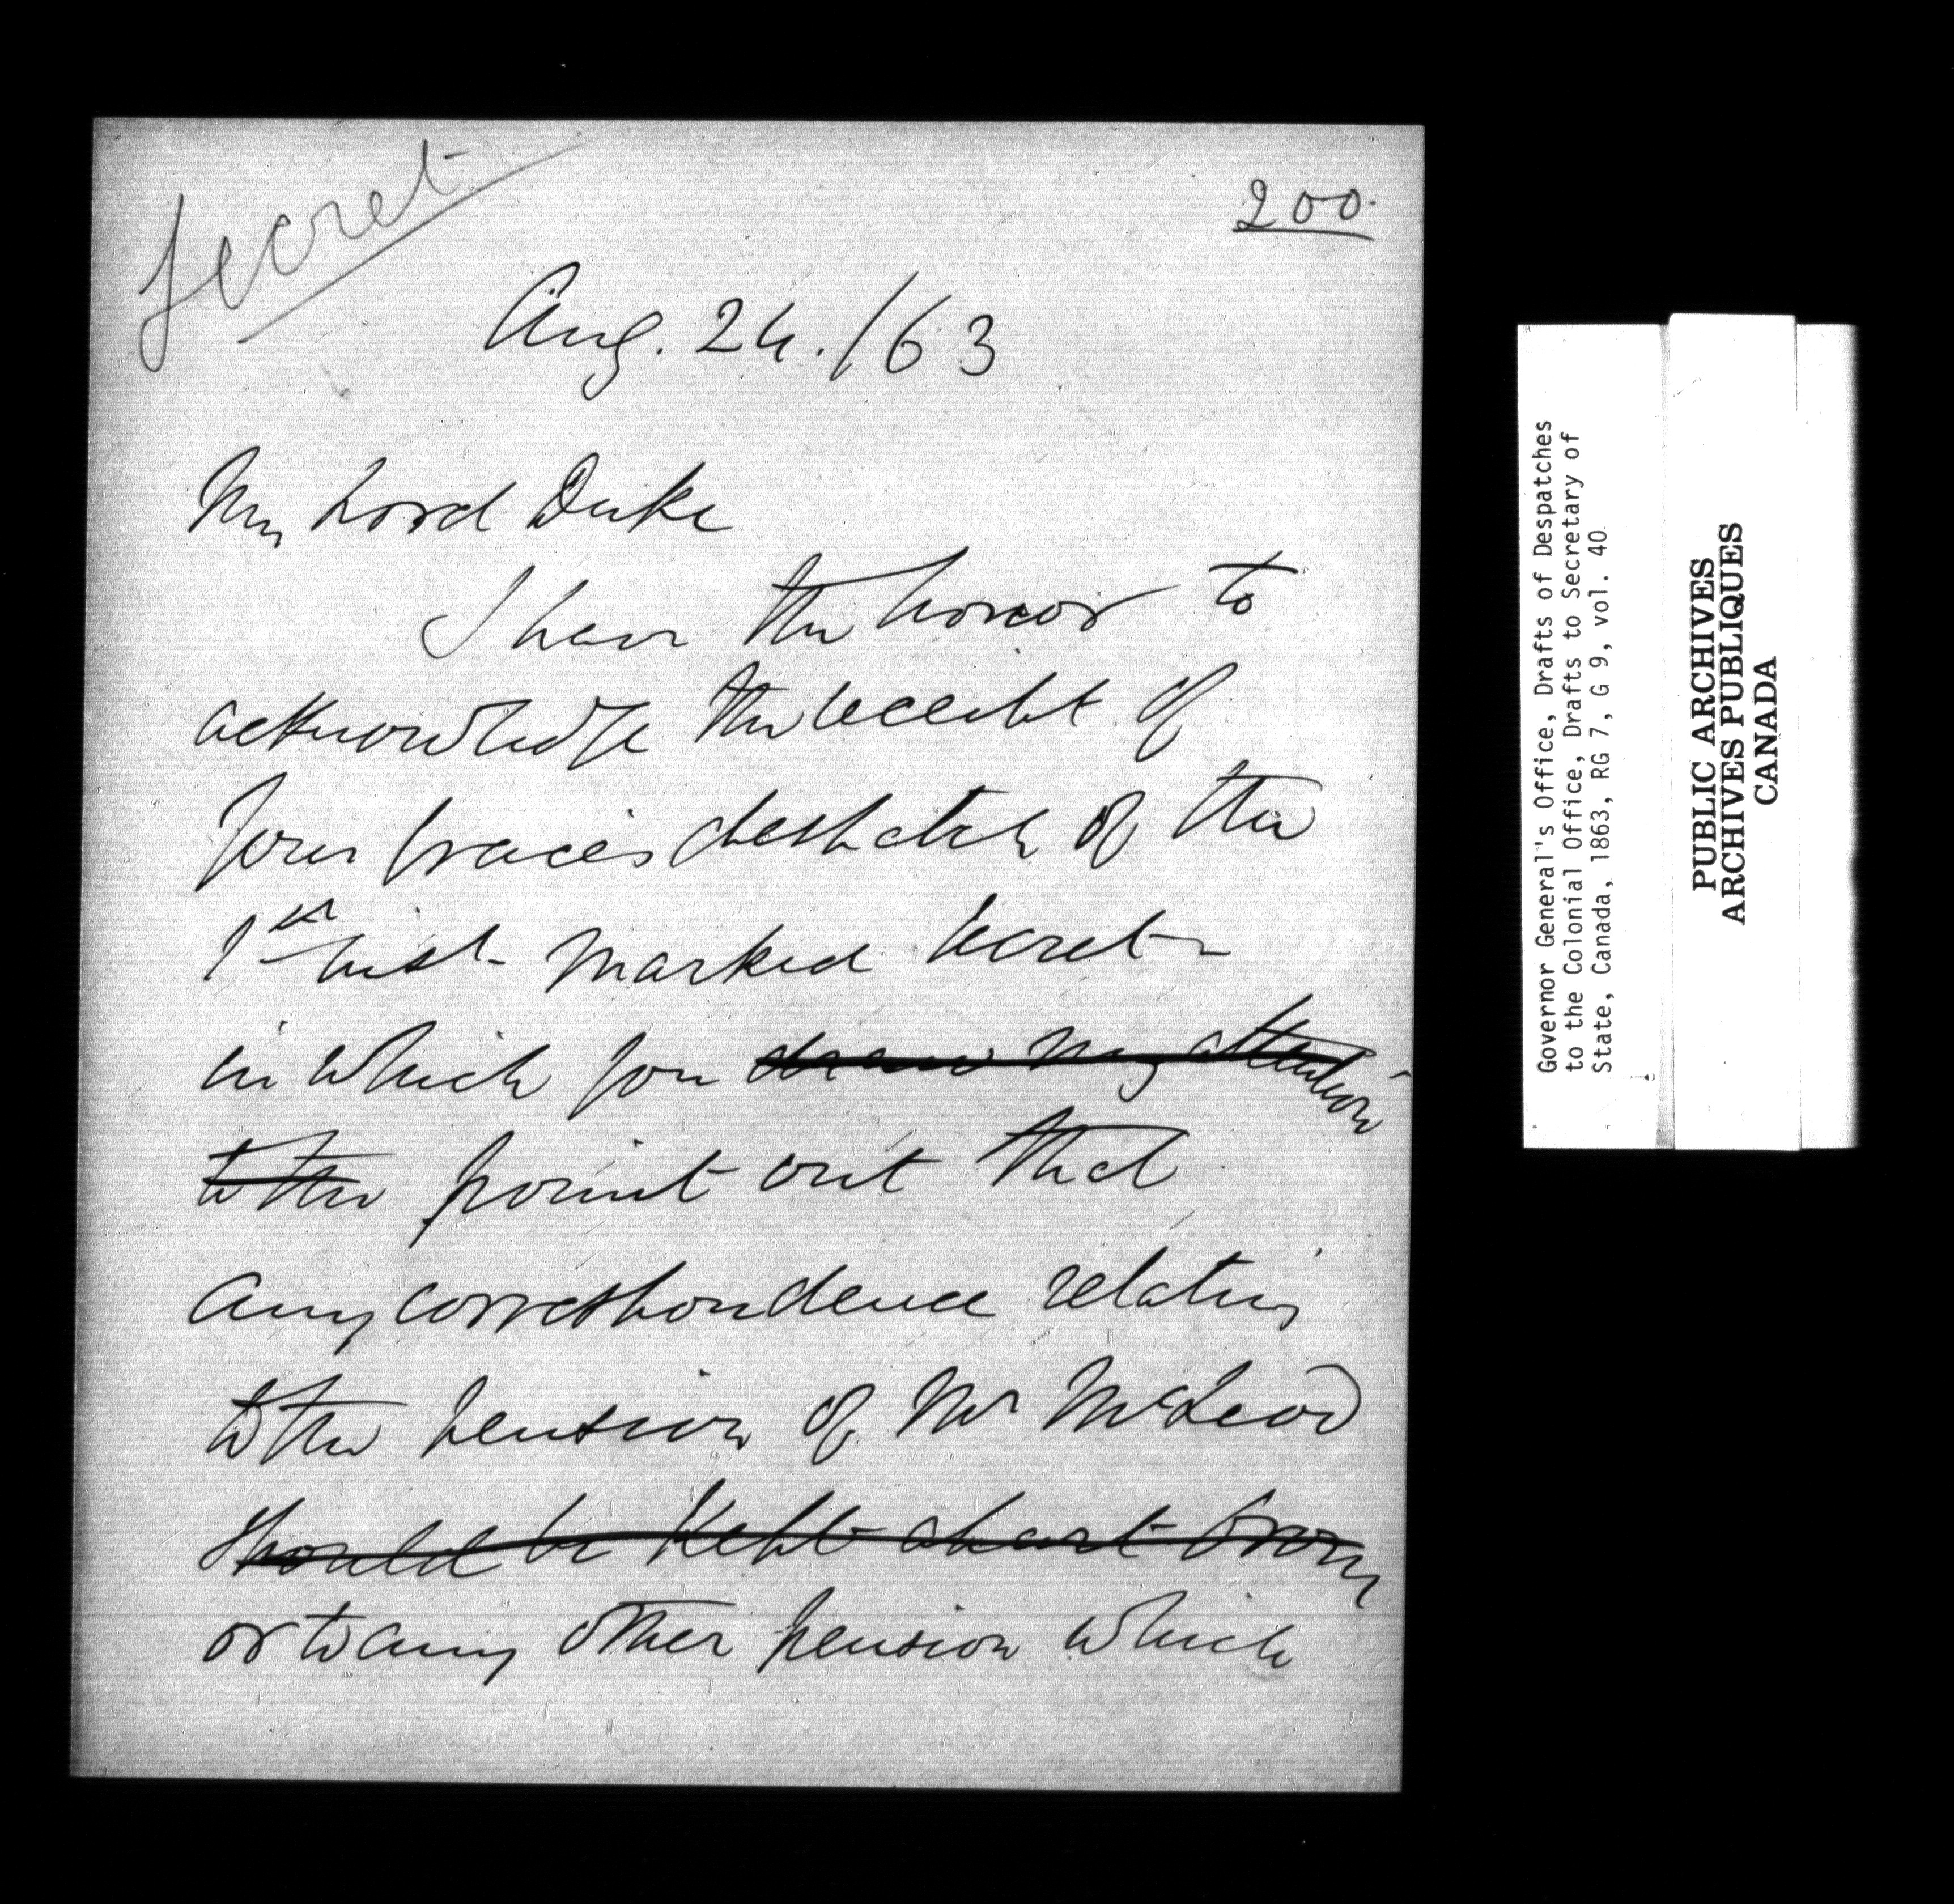 Secret
200.
Aug. 24. /63
My Lord Duke
I have the honor to
acknowledge the receipt of
Your Grace's despatch of the
1st inst. marked Secret
in which you draw my attention
to the point out that
any correspondence relating
to the pension of Mr McLeod
should be kept apart from
or to any other pension which
Governor General's Office, Drafts of Despatches
to the Colonial Office, Drafts to Secretary of
State, Canada, 1863, RG 7, G 9, vol. 40
PUBLIC ARCHIVES
ARCHIVES PUBLIQUES
CANADA